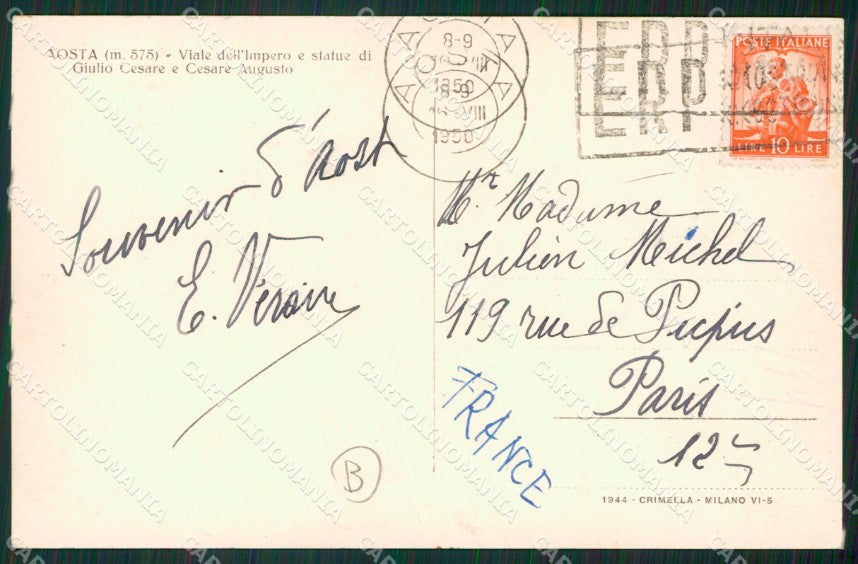 AOSTA (m. 575) - Viale dell'Impero e statue di
Giulio Cesare e Cesare Augusto
Souvenir d'Aost
E.
AOSTA
8-9
VIII
1950
8-9
VIII
1950
ERP
ERP
ERP
POSTE ITALIANE
10 LIRE
Mr Madame
Julien Michel
119 rue de Picpus
Paris
12
FRANCE
B
1944 - CRIMELLA - MILANO VI-S
CARTOLINOMANIA